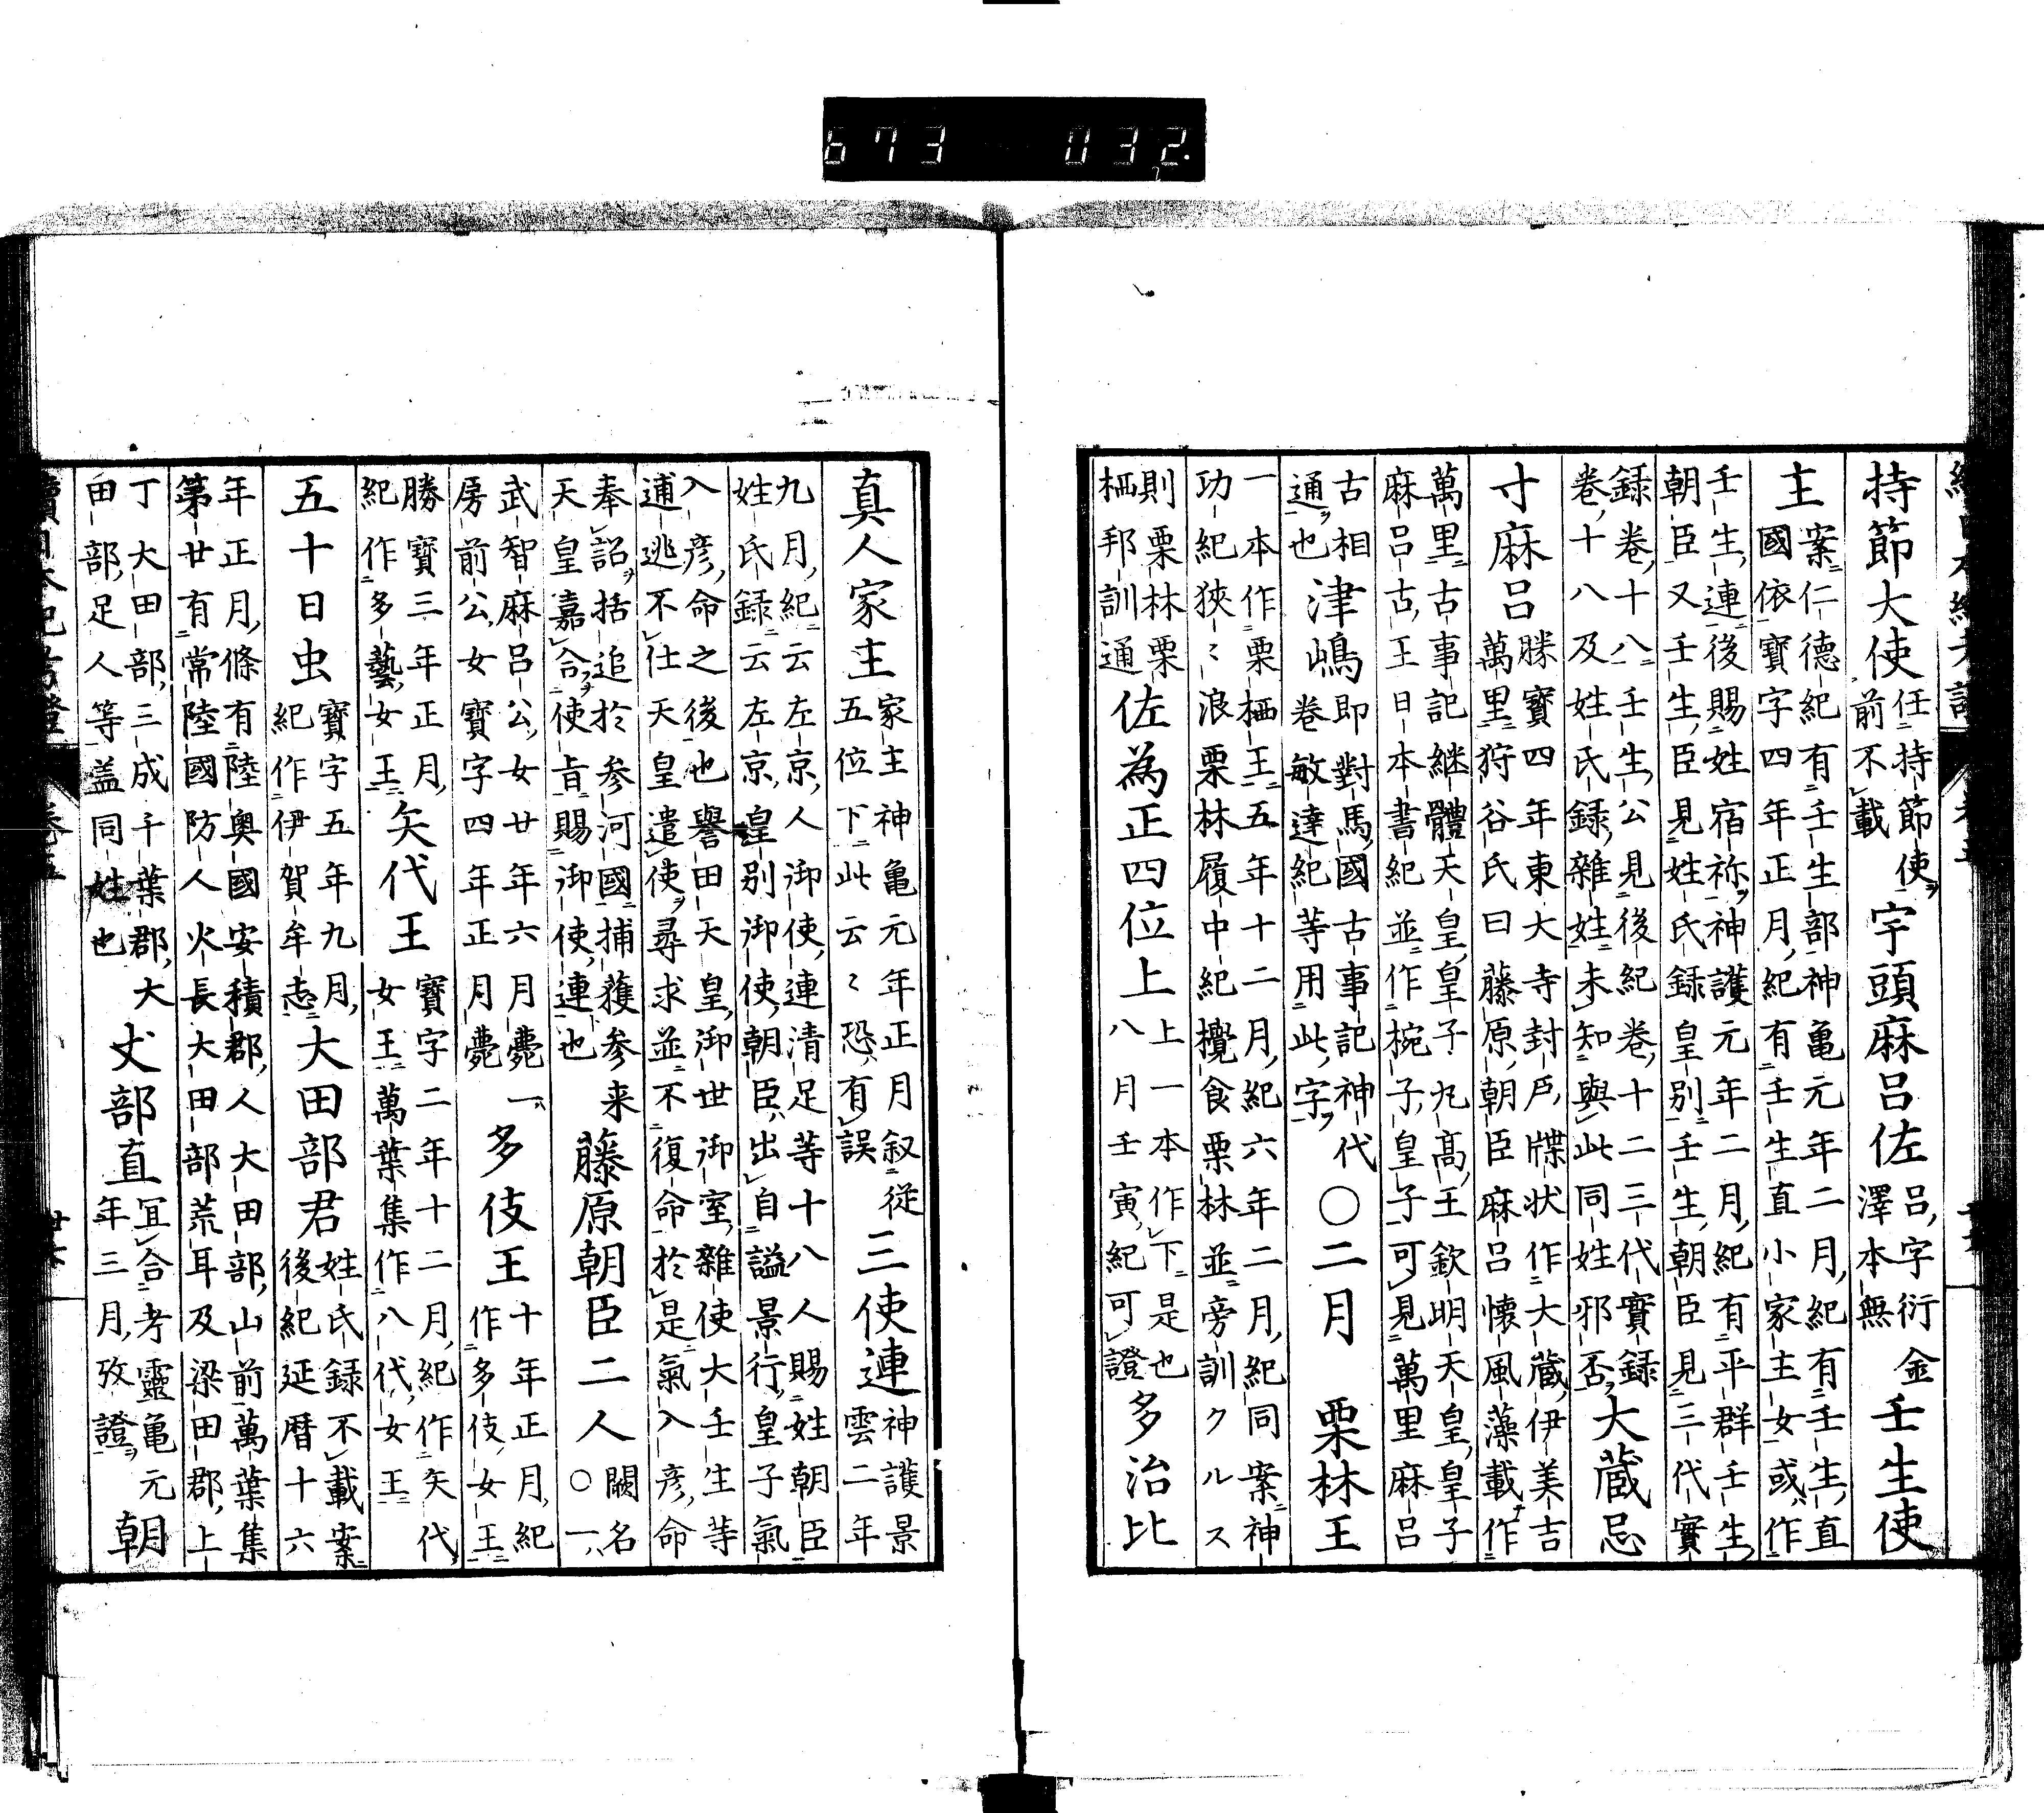 673 032
持節大使任持節使前不載宇頭麻呂佐呂字衍金澤本無壬生使
主案仁徳紀有壬生部神亀元年二月紀有壬生直
國依寳字四年正月紀有壬生直小家主女或作
壬生連後賜姓宿祢神護元年二月紀有平群壬生
朝臣又壬生臣見姓氏録皇别壬生朝臣見三代實
録卷十八壬生公見後紀卷十二三代實録
卷十八及姓氏録雜姓未知與此同姓邪否大蔵忌
寸麻呂勝寳四年東大寺封戸牒状作大蔵伊美吉
萬里狩谷氏曰藤原朝臣麻呂懷風藻載作
萬里古事記継體天皇皇子丸髙王欽明天皇皇子
麻呂古王日本書紀並作椀子皇子可見萬里麻呂
古相通也津嶋即對馬國古事記神代卷敏達紀等用此字〇二月 栗林王
一本作栗栖王五年十二月紀六年二月紀同案神
功紀狹〻浪栗林履中紀攪食栗林並旁訓クルス
則栗林栗栖邦訓通佐為正四位上上一本作下是也八月壬寅紀可證多治比
真人家主家主神亀元年正月叙従五位下此云〻恐有誤三使連神護景雲二年
九月紀云左京人御使連清足等十八人賜姓朝臣
姓氏録云左京皇别御使朝臣出自謚景行皇子氣
入彦命之後也譽田天皇御世御室雜使大壬生等
逋逃不仕天皇遣使尋求並不復命於是氣入彦命
奉詔括追於参河國捕獲参来
天皇嘉合使旨賜御使連也藤原朝臣二人闕名〇一
武智麻呂公女廿年六月薨一
房前公女寳字四年正月薨多伎王十年正月紀作多伎女王
勝寳三年正月紀作多藝女王矢代王寳字二年十二月紀作矢代女王萬葉集作八代女王
五十日虫寳字五年九月紀作伊賀牟志大田部君姓氏録不載案後紀延暦十六
年正月條有陸奥國安積郡人大田部山前萬葉集
第廿有常陸國防人火長大田部荒耳及梁田郡上
丁大田部三成千葉郡大
田部足人等盖同姓也丈部直冝合考靈亀元年三月攷證朝